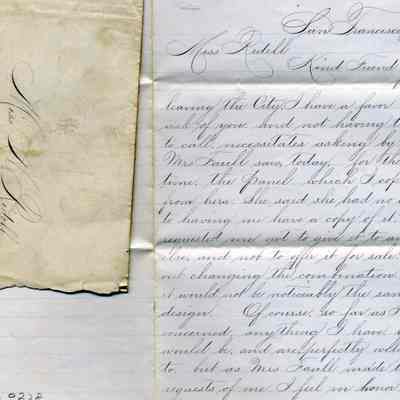 San Francisco
Miss Rudell
Kind Friend
leaving the City I have a favor
ask of you and not having t
to call, necessitates asking by
Mrs Faull saw, today, for the
time, the panel which I cop
from hers. She said she had no o
to having me have a copy of it.
requested me not to give it to a
else, and not to offer it for sale.
out changing the combination
it would not be noticeably the sam
design. Of course, so far as
concerned, anything I have
would be, and are, perfectly welc
to; but as Mrs Faull made t
requests of me I feel in honor
Miss
0232